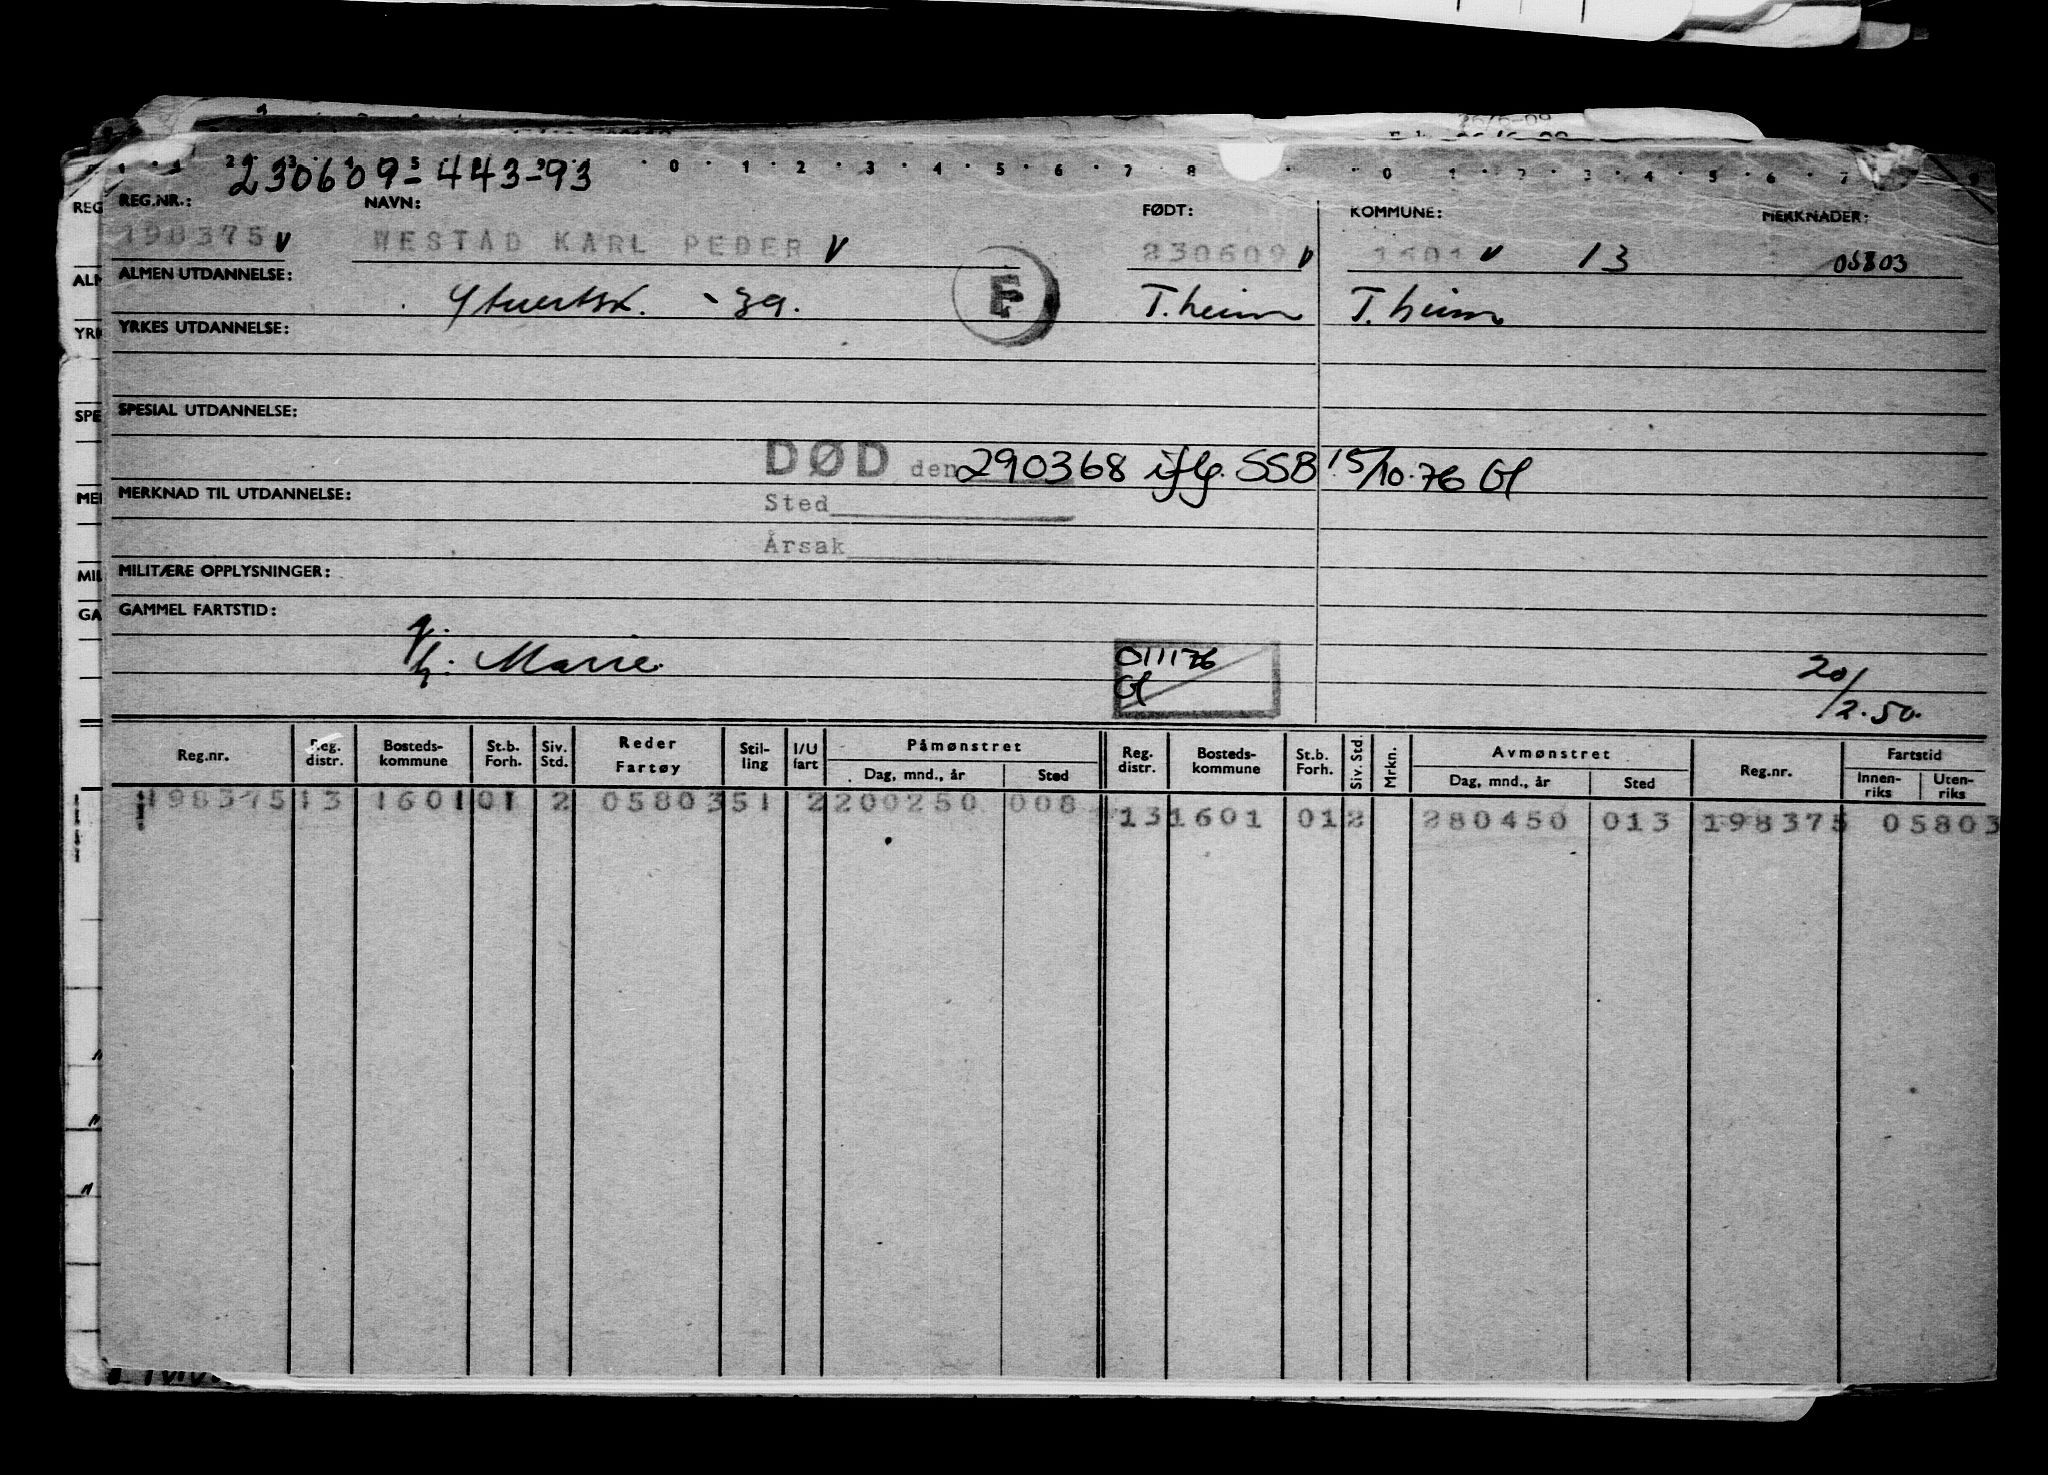 26/6-09
230609-443-93
0 1 2 3 4 5 6 7 8 0 1 2 3 4 5 6 7
REG REG.NR.: NAVN: FØDT: KOMMUNE: MERKNADER:
198375 V WESTAD KARL PEDER V 230609 V 1601 V 13 05803
ALM ALMEN UTDANNELSE: E T.heim T.heim
39.
YRK YRKES UTDANNELSE:
SPE SPESIAL UTDANNELSE:
DØD den 290368 iflg. SSB 15/10.76 Gl
MER MERKNAD TIL UTDANNELSE:
Sted
Årsak
MIL MILITÆRE OPPLYSNINGER:
GA GAMMEL FARTSTID:
h. Marie.
011176
Gl
20/2.50.
Reg.nr. Reg. distr. Bosteds-kommune St.b. Forh. Siv. Std. Reder Fartøy Stil-ling I/U fart Påmønstret Dag, mnd., år Sted Reg. distr. Bosteds-kommune St.b. Forh. Siv. Std. Mrkn. Avmønstret Dag, mnd., år Sted Reg.nr. Fartstid Innen-riks Uten-riks
198375 13 1601 01 2 05803 51 2 200250 008 13 1601 01 2 280450 013 198375 05803